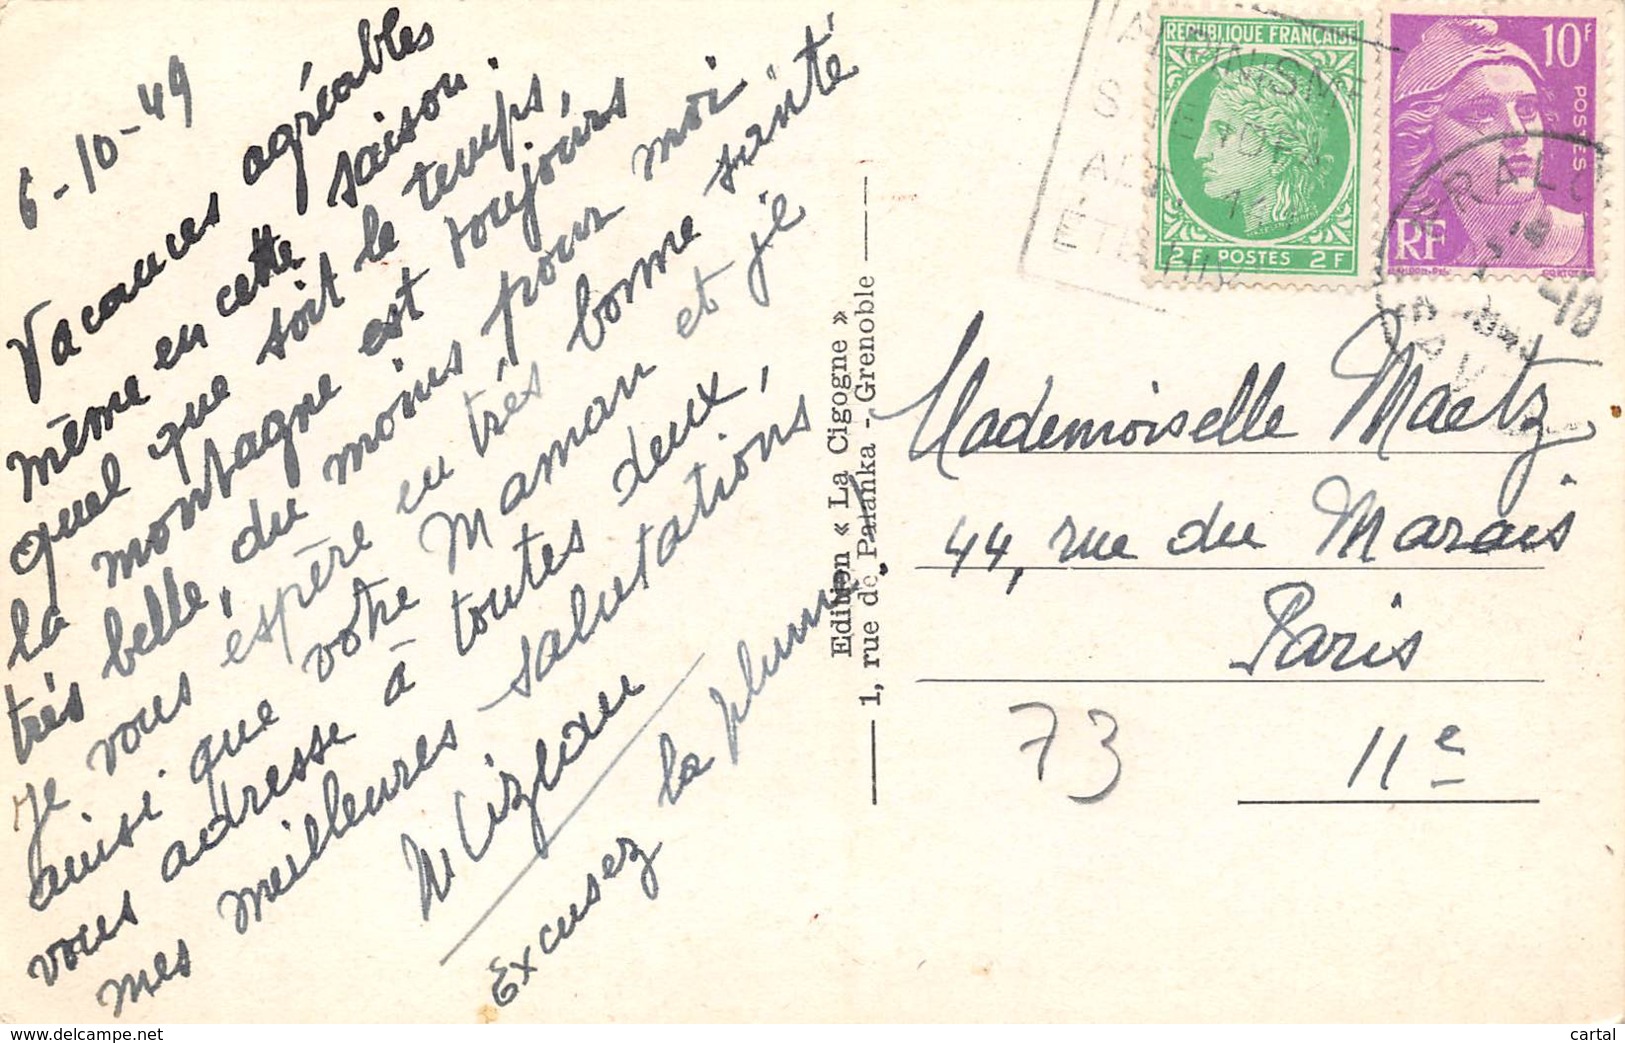 6-10-49
Vacances agréables
même en cette saison.
quel que soit le temps,
la montagne est toujours
très belle, du moins pour moi
Je vous espère en très bonne santé
ainsi que votre Maman et je
vous adresse à toutes deux,
mes meilleures salutations
Excusez la plume.
Edition « La Cigogne »
1, rue de Palanka - Grenoble
ALPINISME
REPUBLIQUE FRANÇAISE
2F POSTES 2F
10F
POSTES
RF
Mademoiselle Maetz
44, rue du Marais
Paris
11e
73
delcampe.net
cartal